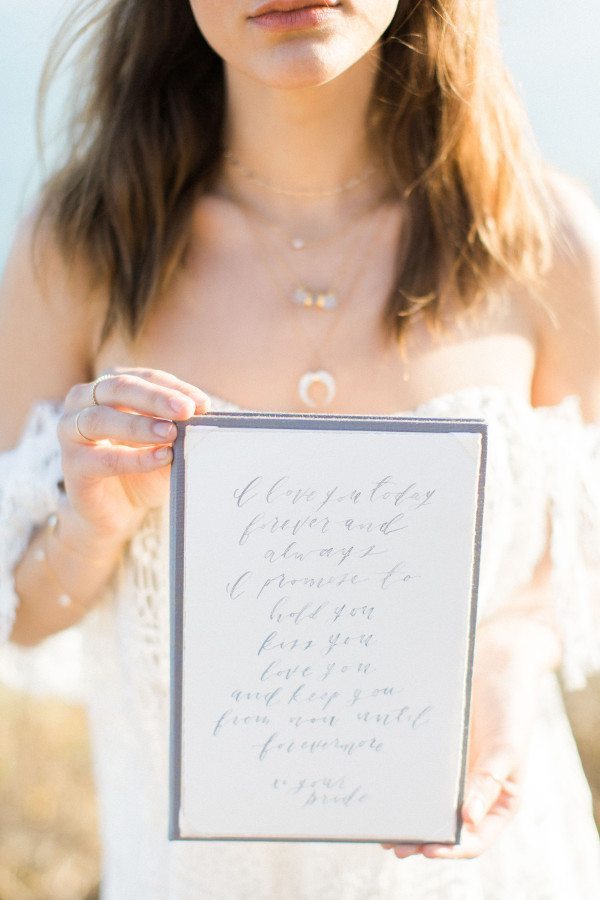 I love you today
forever and
always
I promise to
hold you
kiss you
love you
and keep you
from now until
forevermore
x. your
bride